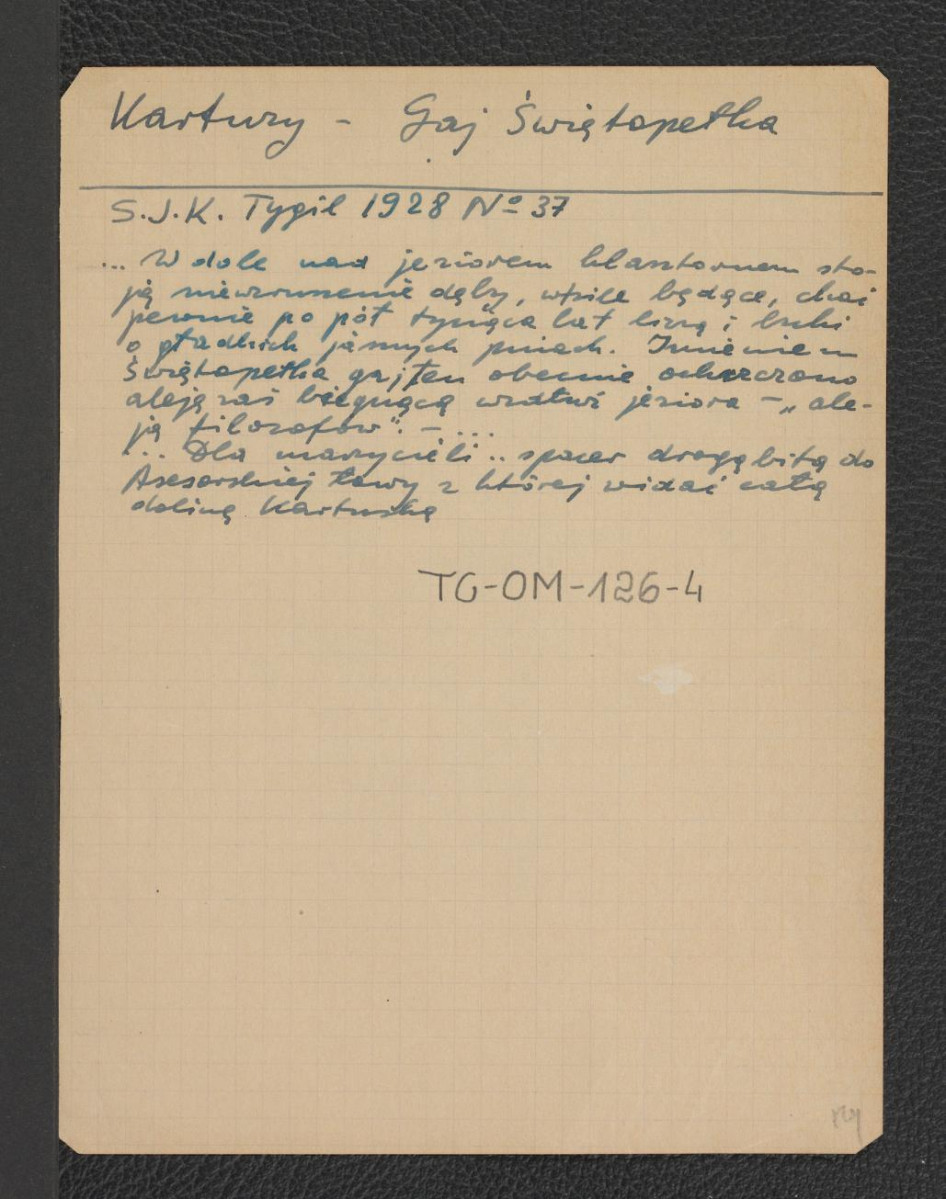 Kartuzy - Gaj Świętopełka
S.J.K. Tygil 1928 No 37
... W dole nad jeziorem klasztornem sto-
ją niewzruszenie dęby, wśile będące, choć
pewnie po pół tysiąca lat liczą i buki
o gładkich jasnych pniach. Imieniem
Świętopełka gaj ten obecnie ochrzczono
aleją zaś biegnącą wzdłuż jeziora - „ale-
ją filozofów". - ...
... Dla marzycieli .. spacer drogą bitą do
Asesorskiej Ławy z której widać całą
dolinę Kartuską
TG-OM-126-4